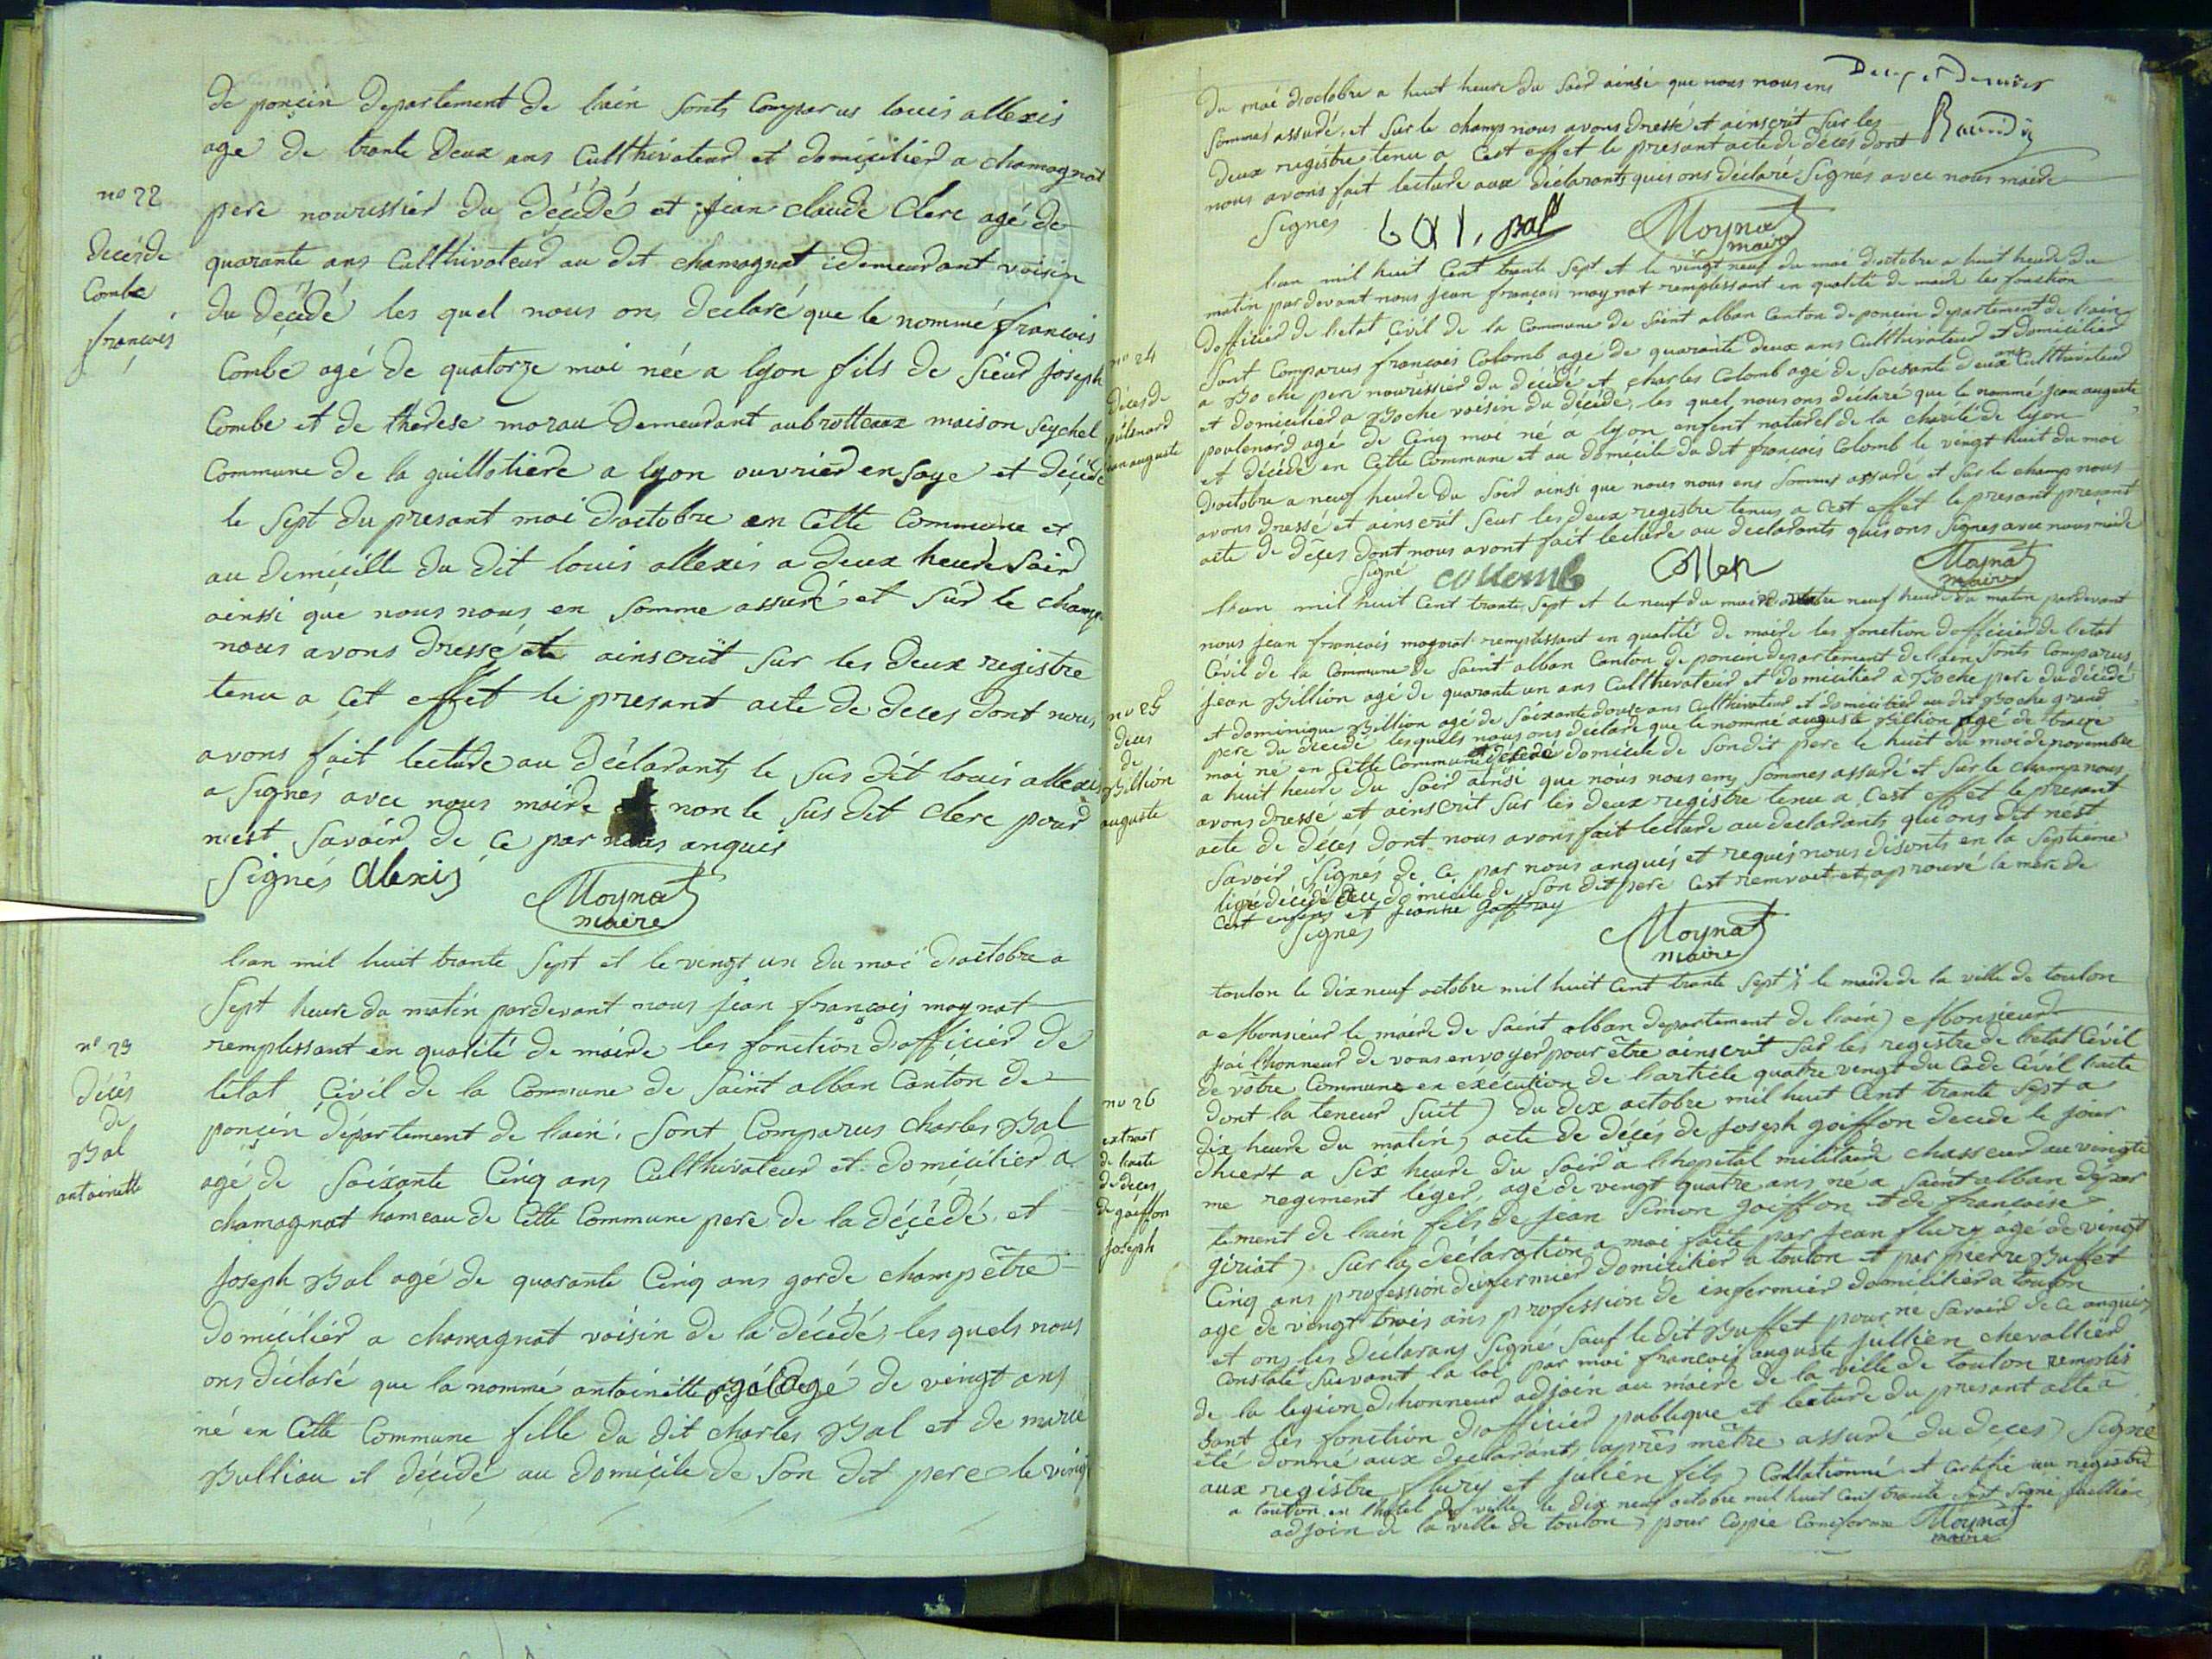 de poncin departement de lain sonts Comparus louis allexis
age de trante deux ans Cultthivateur et domicilier a chamagnat
no 22
pere nourissier du décédé et jean claude Clerc agé de
décés de
quarante ans Cultthivateur au dit chamagnat idemeurant voisin
Combe
du décédé les quel nous ons declaré que le nommé françois
françois
Combe agé de quatorze moi née a lyon fils de sieur joseph
Combe et de therese morau demeurant aubrotteaux maison seychel
Commune de la guillotiere a lyon ouvrier en soye et décédé
le sept du presant moi doctobre en Cette Commune et
au dimicille du dit louis allexis a deux heure soir
ainssi que nous nous en somme assuré et sur le champ
nous avons dressé et ainscrit sur les deux registre
tenu a cet effet le presant acte de deces dont nous
avons fait lecture au déclarants le sus dit louis allexis
a signés avec nous maire non le sus dit clerc pour
n'est savoir de ce par nous anquis
Signés Alexis Moynat
maire
lian mil huit trante sept et le vengt un du moi doctobre a
sept heure du matin pardevant nous jean françois moynat
remplissant en qualité de maire les fonction dofficier de
no 23
létat Civil de la Commune de saint alban Canton de
décés
de
poncin département de l'ain. sont Comparus charles Bal
Bal
agé de soixante Cinq ans Cultthivateur et domicilier a
antoinette
chamagnat hameau de Cette Commune pere de la décédé, et
joseph Bal agé de quarante Cinq ans garde champètre
domicilier a chamagnat voisin de la décédé, les quels nous
ons déclaré que la nommé antoinette agé de vingt ans
né en Cette Commune fille du dit charles Bal et de marie
Bulliau et décédé au domicile de son dit pere le ving
Deux et Dernier
du moi doctobre a huit heure du soir ainsi que nous nous ens
sommes assuré, et sur le champ nous avons dressé et ainscrit sur les
deux registre tenu a cest effet le presant acte de décés dont
nous avons fait lecture aux déclarants quis ons déclaré signés avec nous maire
Signés bal, bal Moynat
maire
lian mil huit Cent trante sept et le vingt neuf du moi doctobre a huit heure du
matin pardevant nous jean françois moynat remplissant en qualité de maire les fonction
dofficier de letat Civil de la Commune de saint alban Canton de poncin departement de lain
no 24
sont Comparus françois Colomb agé de quarante deux ans Cultthivateur et domicilier
a Boche pere nourissier du décédé et charles Colomb agé de soixante deux ans Cultthivateur
décés de
et domicilier a Boche voisin du décédé, les quel nous ons déclaré que le nommé jean auguste
poulenard agé de Cinq moi né a lyon enfent naturel de la charité de lyon
jean auguste
et décédé en Cette Commune et au domicile du dit françois Colomb le vengt huit du moi
doctobre a neuf heure du soir ainsi que nous nous ens sommes assuré et sur le champ nous
avons dressé et ainscrit seur les deux registre tenus a cest effét le presant presant
acte de déces dont nous avont fait lecture au declarants quis ons signes avec nous maire
signé collomb Collon Moynat
maire
lian mil huit Cent trante sept et le neuf du moi neuf heure du matin pardevant
nous jean françois moynat remplissant en qualité de maire les fonction dofficier de letat
Civil de la Commune de saint alban Canton de poncin departement de lain sonts Comparus
no 25
jean Billion agé de quarante un ans Cultthivateur et domicilier a Boche pere du décédé
déces
et dominique Billion agé de soixante douse ans Cultthivateur et domicilier au dit Boche grand
de
pere du decedé lesquels nous ons declaré que le nommé auguste Billion agé de traize
Billion
moi né en Cette Commune et décédé domicile de son dit pere le huit du moi de novembre
auguste
a huit heure du soir ainsi que nous nous ens sommes assuré et sur le champ nous
avons dressé et ainscrit sur les deux registre tenu a cest effet le presant
acte de décés dont nous avons fait lecture au declarants qui ons dit nest
savoir signés de ce par nous anqués et requis nous disonts en la septieme
ligne décédé au domicile de son dit pere cest remvoit et aprouvé la mere de
cest enfens et jeanne goffray
Signés Moynat
maire
toulon le dix neuf octobre mil huit Cent trante sept le maire de la ville de toulon
a Monsieur le maire de saint alban departement de lain) Monsieur
jai l'honneur de vous envoyer pour être ainscrit sur les registre de letat Civil
de votre Commune en exécution de l'article quatre vengt du Code Civil lacte
no 26
dont la teneur suit) du dix octobre mil huit Cent trante sept a
extrait
dix heure du matin, acte de décés de joseph goiffon decede le jour
de lacte
dhiert a six heure du soir a lhopital militaire chasseur au vingte
de déces
me regiment léger, agé de vengt quatre ans né a saint alban depar
de goiffon
tement de lain fils de jean simon goiffon et de francoise
joseph
giriat) sur la déclaration a moi faite par jean flury agé de vingt
Cinq ans profession deinfermier domicilier a toulon et par pierre Buffet
agé de vengt trois ans profession de infermier domicilier a toulon
et ons les déclarans signé sauf le dit Buffet pour ne savoir de ce anquis
Constaté suivant la loi par moi francois auguste jullien chevallier
de la legion dhonneur adjoin au maire de la ville de toulon remplis
sant les fonction dofficier publique et lecture du presant acte a
été donné aux declarants apres mètre assuré du deces) signé
aux registre flury et julien fils) Collationné et certifie au registre
a toulon en lhotel de ville le dix neuf octobre mil huit Cent trante sept signé juellien
adjoin de la ville de toulon) pour Coppie Conforme Moynat
maire